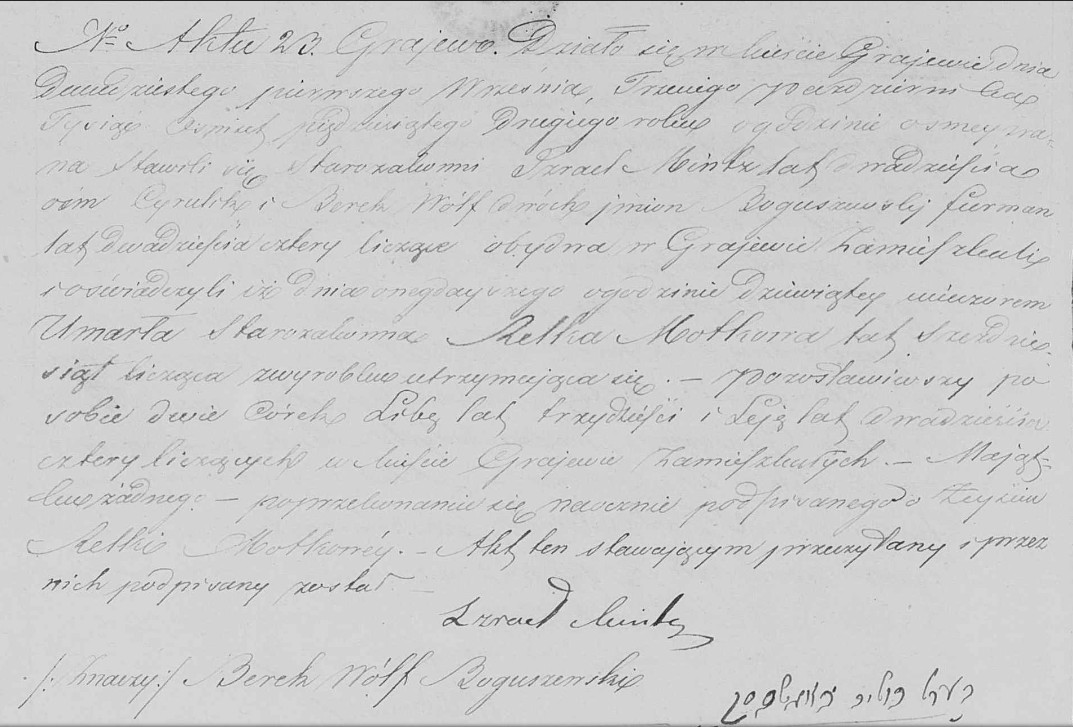 No Aktu 23. Grajewo. Działo się w Mieście Grajewie dnia
Dwudziestego pierwszego Września, Trzeciego października
Tysiąc Osmset pięćdziesiątego Drugiego roku ogodzinie osmey zra-
na Stawili się Starozakonni Izrael Mintz lat dwadzieścia
ośm Cyrulik i Berek Wólf dwóch jmion Boguszewskj furman
lat dwadzieścia cztery liczące obydwa w Grajewie Zamieszkali
i oświadczyli iż dnia onegdayszego ogodzinie dziewiątey wieczorem
Umarła Starozakonna Retka Motkowa lat sześdzie-
siąt licząca zwyrobku utrzymająca się. – pozostawiwszy po
sobie dwie Córek Libę lat trzydzieści i Leję lat dwadzieścia
cztery liczących w Mieście Grajewie Zamieszkałych. – Mająt-
ku żadnego – poprzekonaniu się naocznie podpisanego o Zejściu
Retki Motkowéy. – Akt ten stawającym przeczytany i przez
nich podpisany został. –
Izrael Mintz
/: Znaczy :/ Berek Wólf Boguszewski